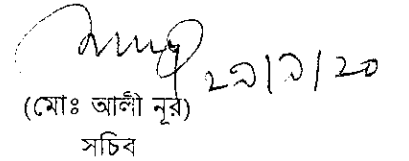 ২৯/৯/২০
(মোঃ আলী নূর)
সচিব